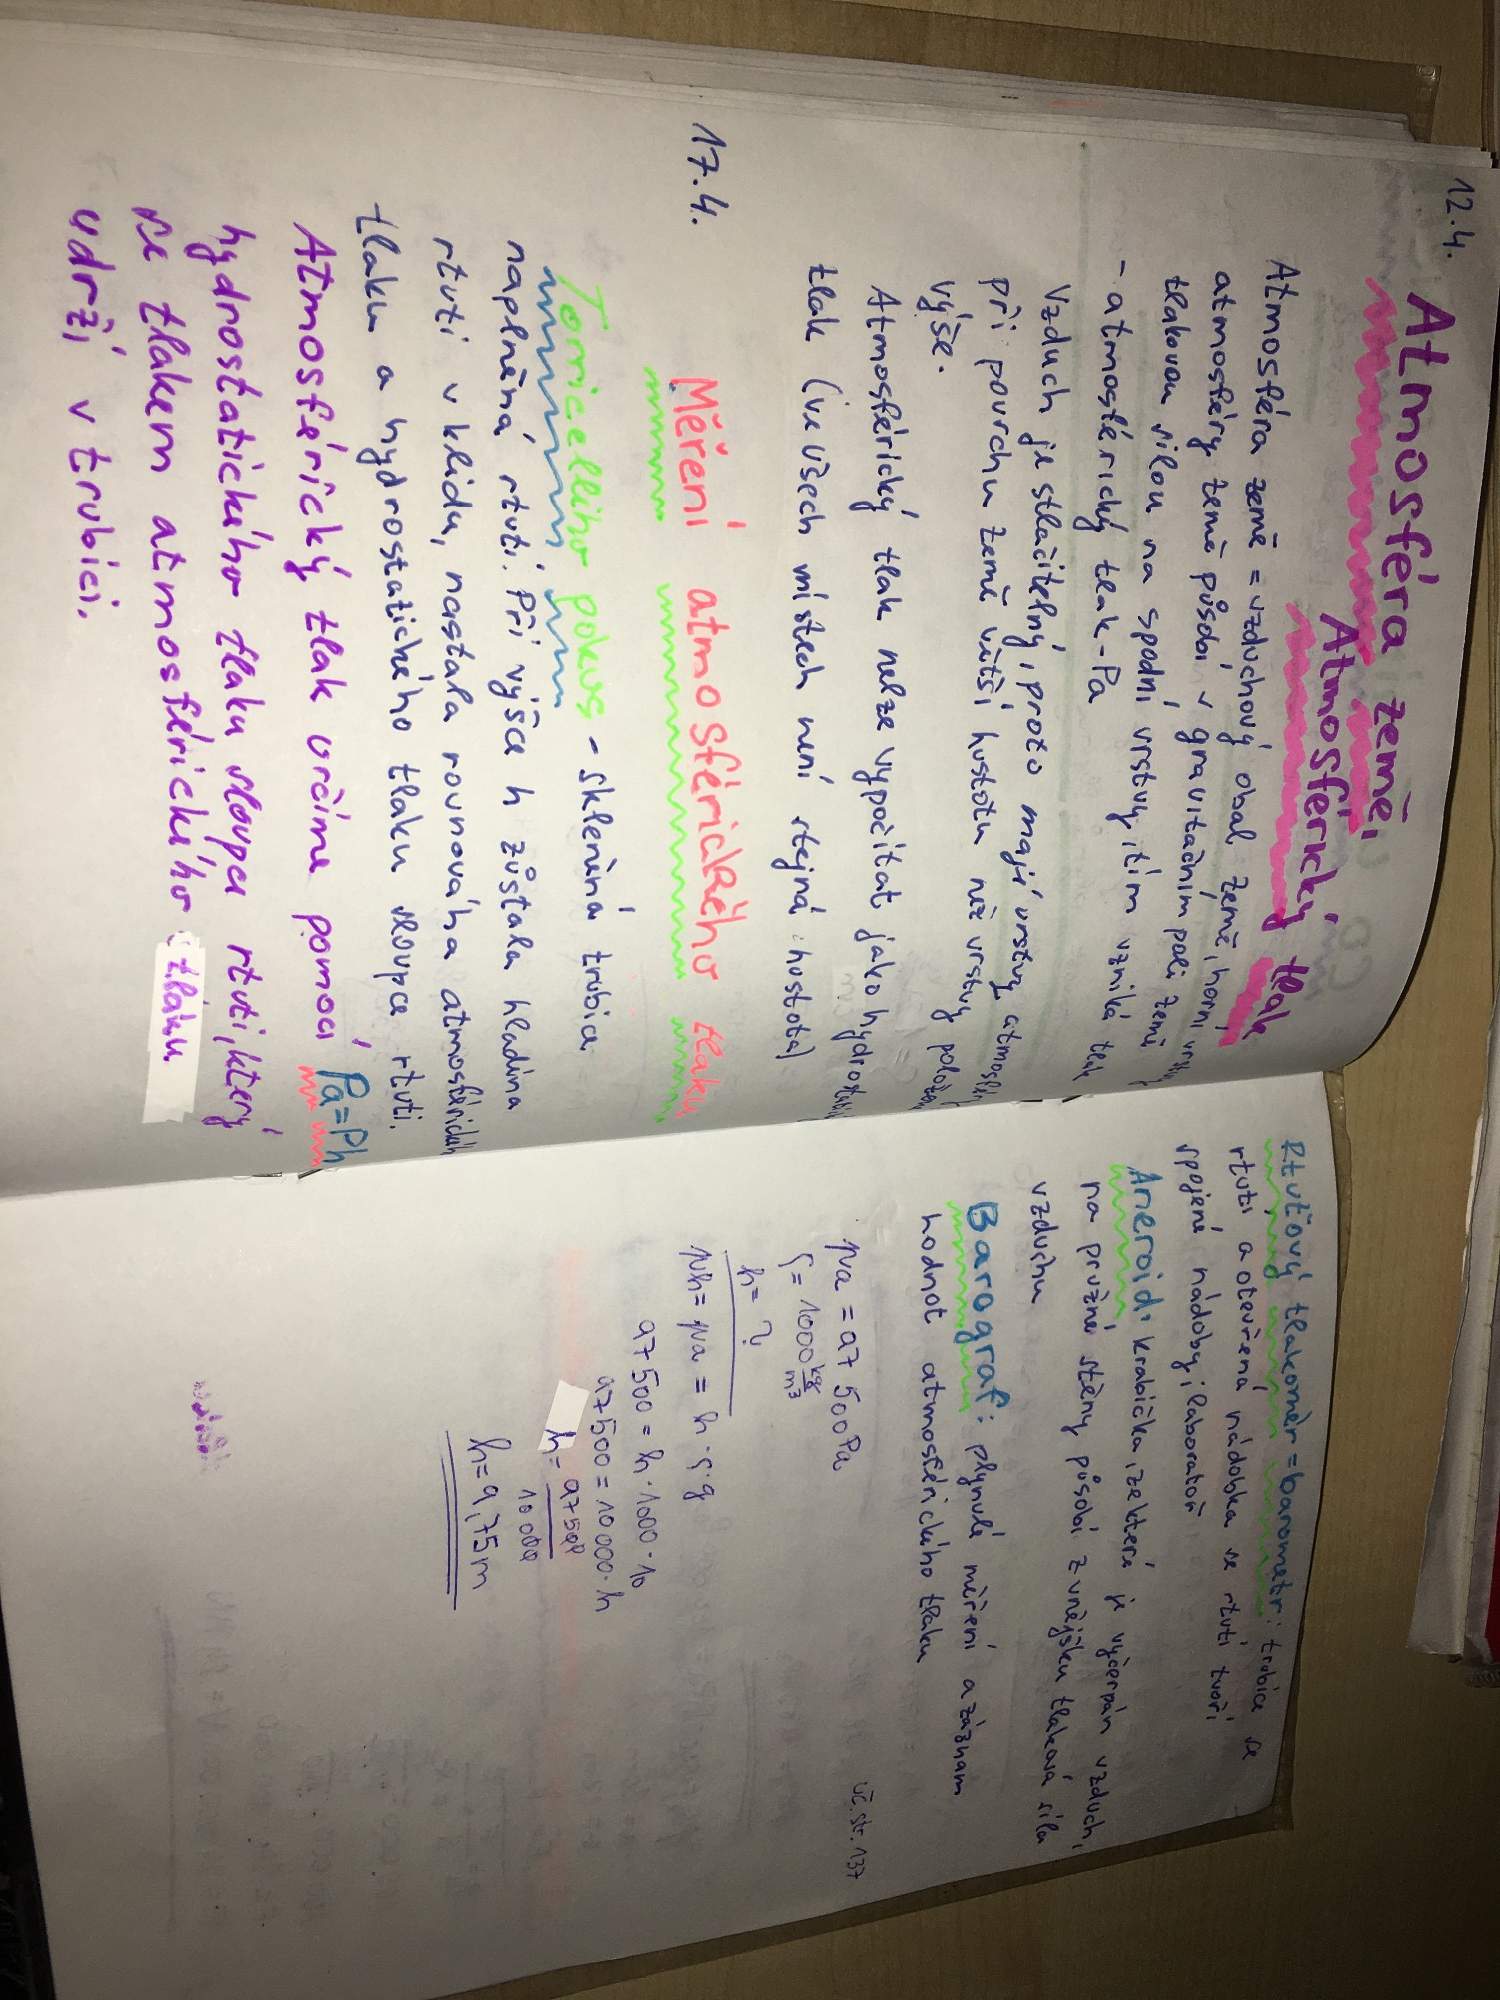 12.4.
Atmosféra země,
Atmosférický tlak
Atmosféra země = vzduchový obal země, horní vrstvy
atmosféry země působí v gravitačním poli země
tlakovou silou na spodní vrstvy, tím vzniká tlak
- atmosférický tlak - Pa
Vzduch je stlačitelný, proto mají vrstvy atmosféry
při povrchu země větší hustotu než vrstvy položené
výše.
Atmosférický tlak nelze vypočítat jako hydrostatický
tlak (ve všech místech není stejná hustota)
17.4.
Měření atmosférického tlaku
Toricelliho pokus - skleněná trubice
naplněná rtuti. Při výšce h zůstala hladina
rtuti v klidu, nastala rovnováha atmosférického
tlaku a hydrostatického tlaku sloupce rtuti.
Atmosférický tlak určíme pomocí Pa=Ph
hydrostatického tlaku sloupce rtuti, který
se tlakem atmosférického tlaku
udrží v trubici.
Rtuťový tlakoměr = barometr: trubice se
rtuti a otevřená nádobka se rtuti tvoří
spojené nádoby, laboratoř
Aneroid: krabička, ze které je vyčerpán vzduch,
na pružné stěny působí z vnějšku tlaková síla
vzduchu
Barograf: plynulé měření a záznam
hodnot atmosférického tlaku
uč. str. 137
pa = 97 500 Pa
ρ = 1000 kg/m3
h = ?
ph = pa = h · ρ · g
97 500 = h · 1000 · 10
97500 = 10 000 · h
h = 97500/10 000
h = 9,75 m